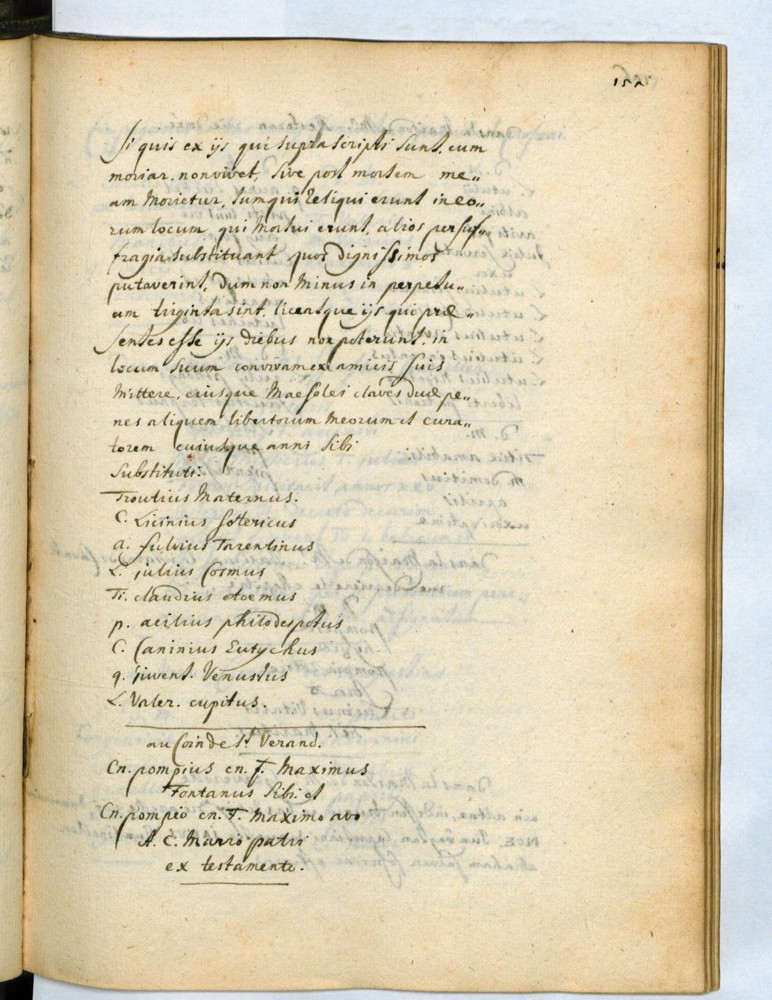 152
Si quis ex ijs qui supra scripti sunt, cum
moriar, non vivet, sive post mortem me„
am Morietur, tum qui Reliqui erunt in eo„
rum locum qui Mortui erunt, alios per suf„
fragia substituant quos dignissimos
putaverint, dum non Minus in perpetu„
um triginta sint, liceatque ijs qui præ„
sentes esse ijs diebus non poterunt, in
locum suum convivam ex amicis suis
Mittere, eiusque Maesolei claves duæ pe„
nes aliquem libertorum Meorum et cura„
torem cuiusque anni sibi
substituti.
Troutius Maternus.
C. Licinius Sotericus
a. fulvius Tarentinus
L. julius Cosmus
Ti. claudius
p. acilius philodespotus
C. Caninius Eutychus
q. juvent. Venustus
L. Valer. cupitus.
au Coin de St Verand.
Cn. pompius cn. f. Maximus
Fontanus sibi et
Cn. pompeo cn. F. Maximo avo
et C. Marro patri
ex testamento.